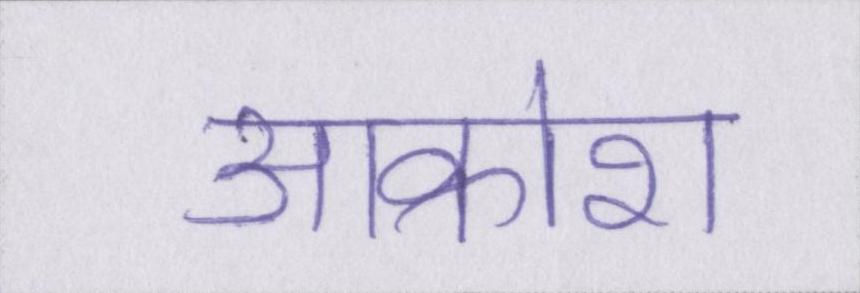 आक्रोश